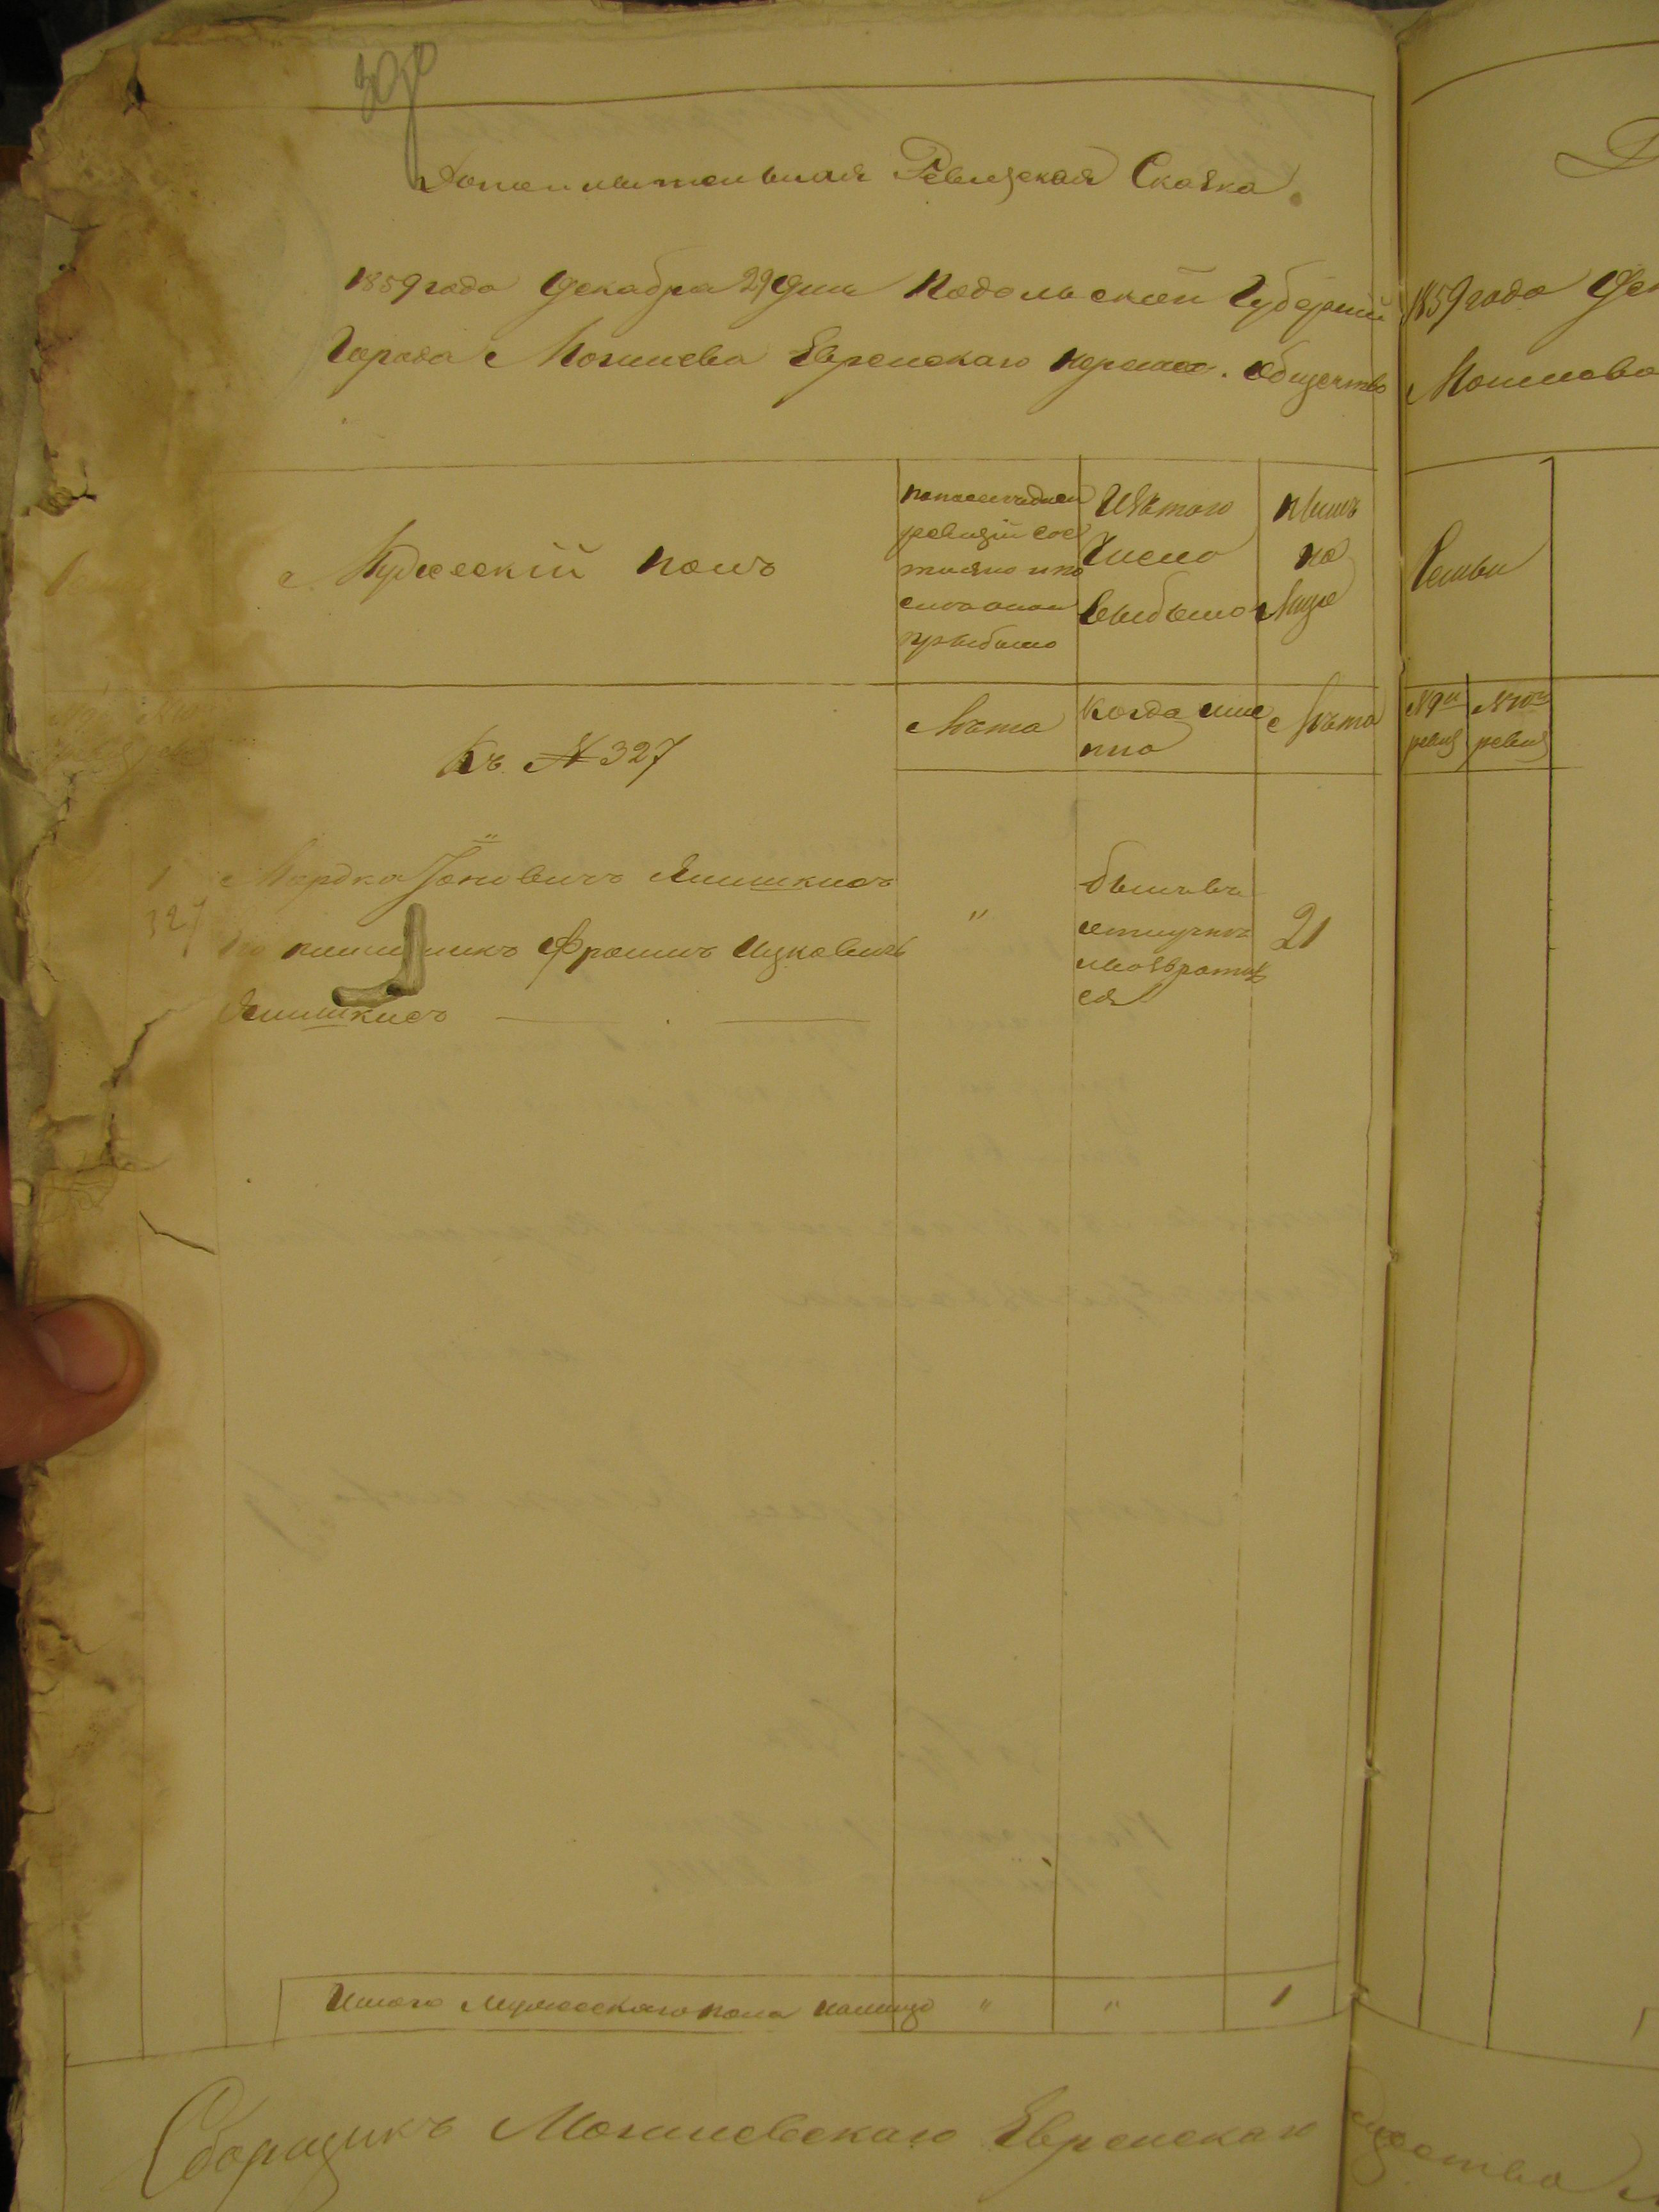 390
Дополнительная Ревизская Сказка.
1859 года Декабря 29 дня Подольской Губернии
Города Могилева Еврейского общество
Мужеский полъ
По последней
ревизiи сос
тояло и по
сле оной
прибыло
Изъ того
числа
выбыло
Ныне
на
лице
Лета
Когда име
нно
Лета
Къ № 327
1
327
Мордко Iоновичъ
Фроимъ Ицковичъ
"
бывъ въ
отлучке
возвратил
ся
21
Итого мужескаго пола налицо " " 1
Сборщикъ Могилевскаго Еврейскаго Общества
1859 года Дек
Могилева
Семьи
№ 9й
ревиз
№ 10й
ревиз